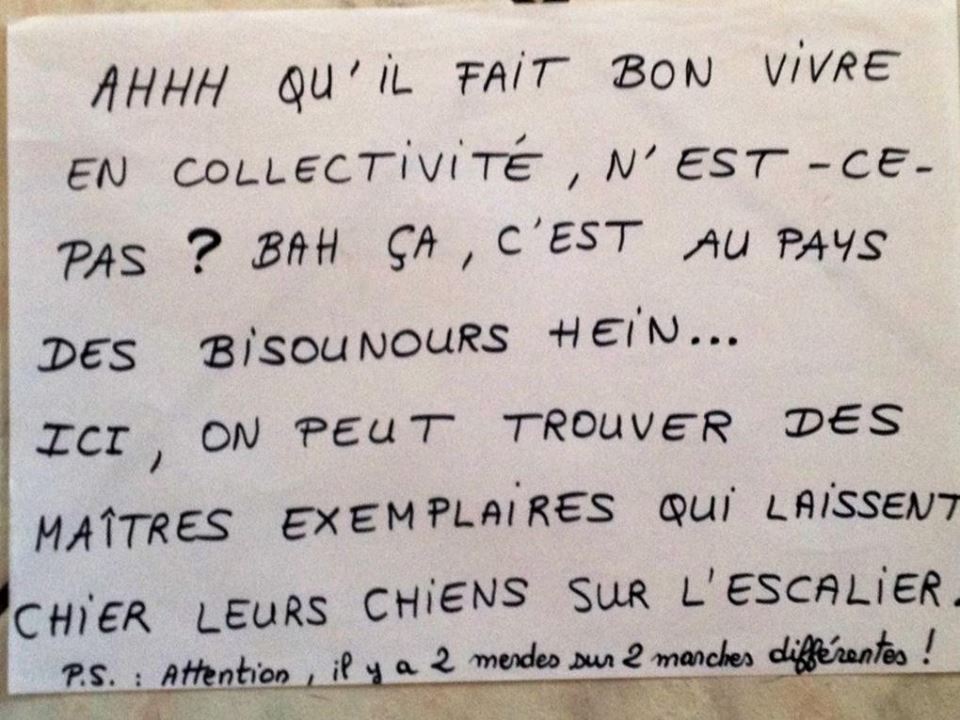 AHHH QU'IL FAIT BON VIVRE
EN COLLECTIVITÉ, N'EST-CE-
PAS ? BAH ÇA, C'EST AU PAYS
DES BISOUNOURS HEIN...
ICI, ON PEUT TROUVER DES
MAÎTRES EXEMPLAIRES QUI LAISSENT
CHIER LEURS CHIENS SUR L'ESCALIER.
P.S. : Attention, il y a 2 merdes sur 2 marches différentes !